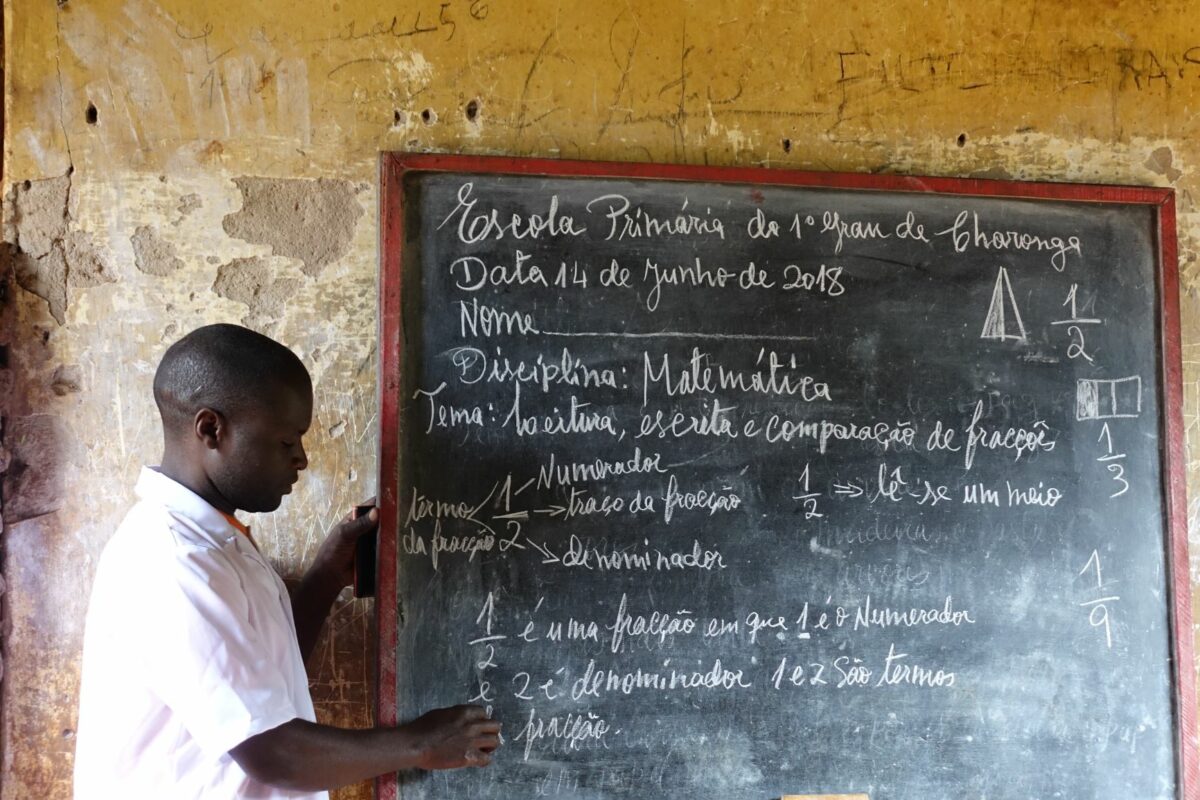 Escola Primária do 1º Grau de Charonga
Data 14 de Junho de 2018
Nome
1/2
Disciplina: Matemática
Tema: Leitura, escrita e comparação de fracções
1/3
Numerador
término da fracção 1/2 traço da fracção
denominador
1/2 ⇒ lê-se um meio
1/9
1/2 é uma fracção em que 1 é o Numerador
e 2 é denominador 1 e 2 São termos
fracção.